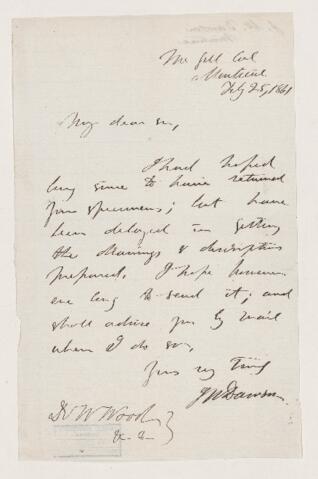 McGill Col
Montreal
Feby 25, 1861
My dear sir,
I had hoped
long since to have returned
your specimens; but have
been delayed in getting
the drawings & descriptions
prepared. I hope however
ere long to send it; and
shall advise you by mail
when I do so,
Yours very truly
JWDawson
Dr W Wood
&c &c